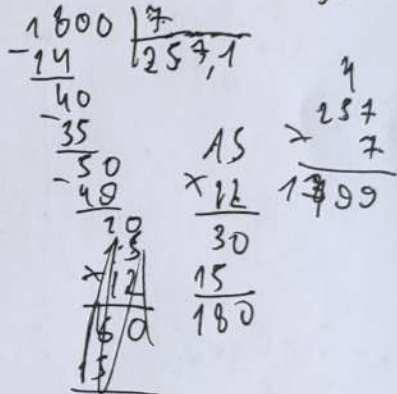 1800 | 7
-14 257,1
40
-35
50
-49
10
15
× 12
30
15
180
4
257
× 7
1799